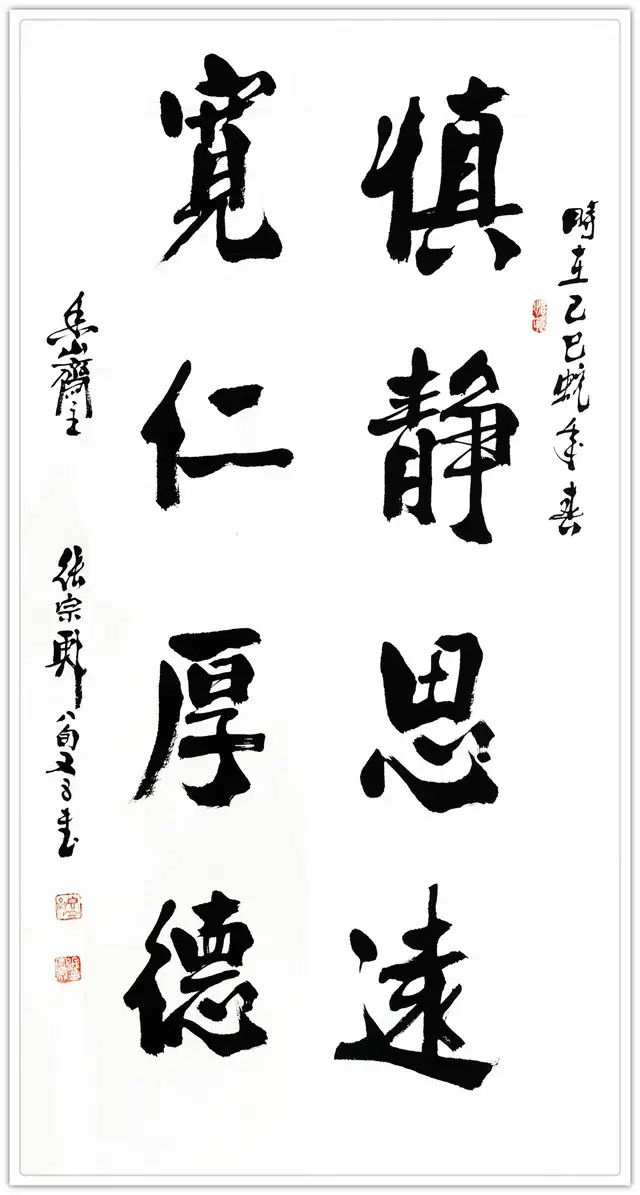 時在己巳蛇年春
慎靜思遠
寬仁厚德
山齋主
張宗 八旬又 書